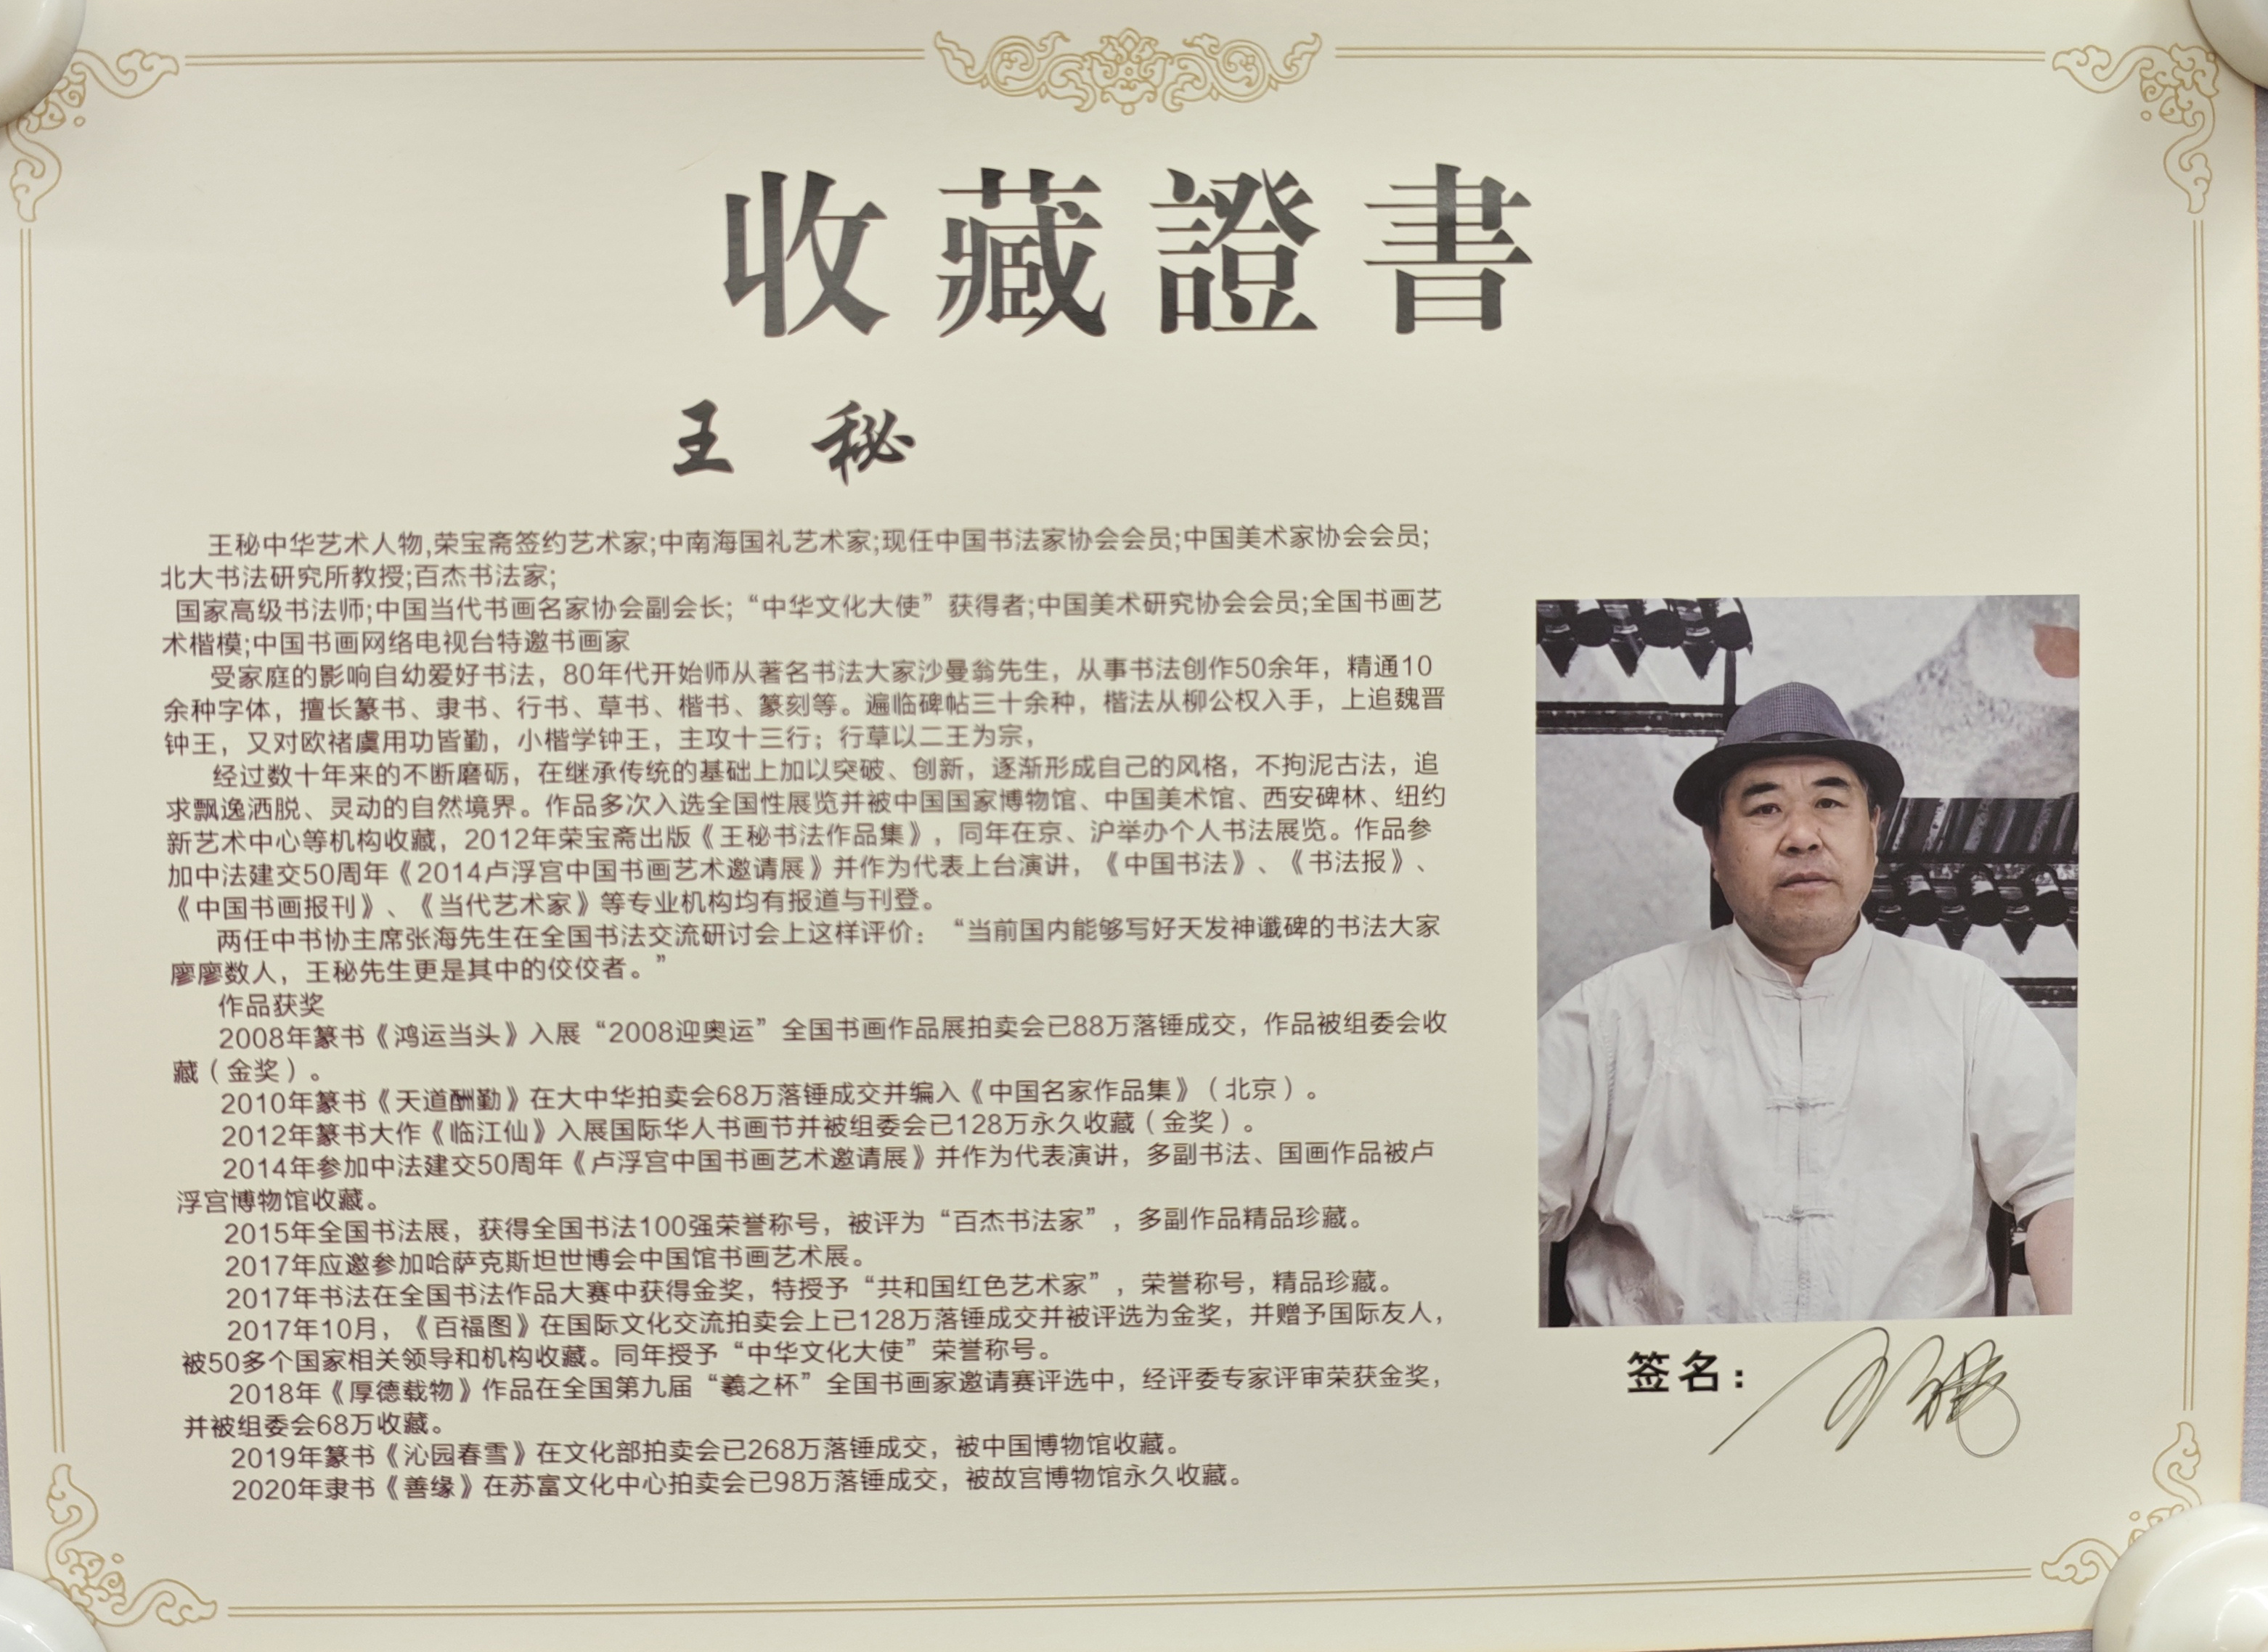 收藏證書
王 秘
王秘中华艺术人物,荣宝斋签约艺术家;中南海国礼艺术家;现任中国书法家协会会员;中国美术家协会会员;
北大书法研究所教授;百杰书法家;
国家高级书法师;中国当代书画名家协会副会长;“中华文化大使”获得者;中国美术研究协会会员;全国书画艺
术楷模;中国书画网络电视台特邀书画家
受家庭的影响自幼爱好书法，80年代开始师从著名书法大家沙曼翁先生，从事书法创作50余年，精通10
余种字体，擅长篆书、隶书、行书、草书、楷书、篆刻等。遍临碑帖三十余种，楷法从柳公权入手，上追魏晋
钟王，又对欧褚虞用功皆勤，小楷学钟王，主攻十三行；行草以二王为宗，
经过数十年来的不断磨砺，在继承传统的基础上加以突破、创新，逐渐形成自己的风格，不拘泥古法，追
求飘逸洒脱、灵动的自然境界。作品多次入选全国性展览并被中国国家博物馆、中国美术馆、西安碑林、纽约
新艺术中心等机构收藏，2012年荣宝斋出版《王秘书法作品集》，同年在京、沪举办个人书法展览。作品参
加中法建交50周年《2014卢浮宫中国书画艺术邀请展》并作为代表上台演讲，《中国书法》、《书法报》、
《中国书画报刊》、《当代艺术家》等专业机构均有报道与刊登。
两任中书协主席张海先生在全国书法交流研讨会上这样评价：“当前国内能够写好天发神谶碑的书法大家
廖廖数人，王秘先生更是其中的佼佼者。”
作品获奖
2008年篆书《鸿运当头》入展“2008迎奥运”全国书画作品展拍卖会已88万落锤成交，作品被组委会收
藏（金奖）。
2010年篆书《天道酬勤》在大中华拍卖会68万落锤成交并编入《中国名家作品集》（北京）。
2012年篆书大作《临江仙》入展国际华人书画节并被组委会已128万永久收藏（金奖）。
2014年参加中法建交50周年《卢浮宫中国书画艺术邀请展》并作为代表演讲，多副书法、国画作品被卢
浮宫博物馆收藏。
2015年全国书法展，获得全国书法100强荣誉称号，被评为“百杰书法家”，多副作品精品珍藏。
2017年应邀参加哈萨克斯坦世博会中国馆书画艺术展。
2017年书法在全国书法作品大赛中获得金奖，特授予“共和国红色艺术家”，荣誉称号，精品珍藏。
2017年10月，《百福图》在国际文化交流拍卖会上已128万落锤成交并被评选为金奖，并赠予国际友人，
被50多个国家相关领导和机构收藏。同年授予“中华文化大使”荣誉称号。
2018年《厚德载物》作品在全国第九届“羲之杯”全国书画家邀请赛评选中，经评委专家评审荣获金奖，
并被组委会68万收藏。
2019年篆书《沁园春雪》在文化部拍卖会已268万落锤成交，被中国博物馆收藏。
2020年隶书《善缘》在苏富文化中心拍卖会已98万落锤成交，被故宫博物馆永久收藏。
签名：